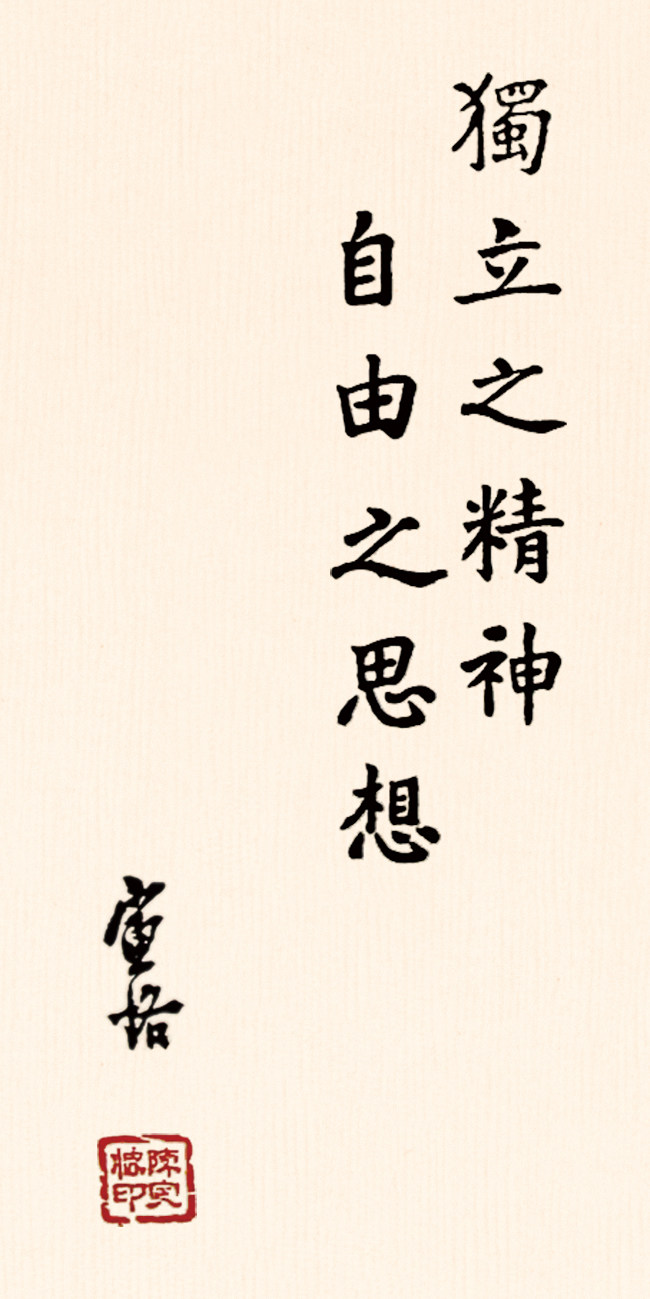 獨立之精神
自由之思想
寅恪
陳寅
恪印